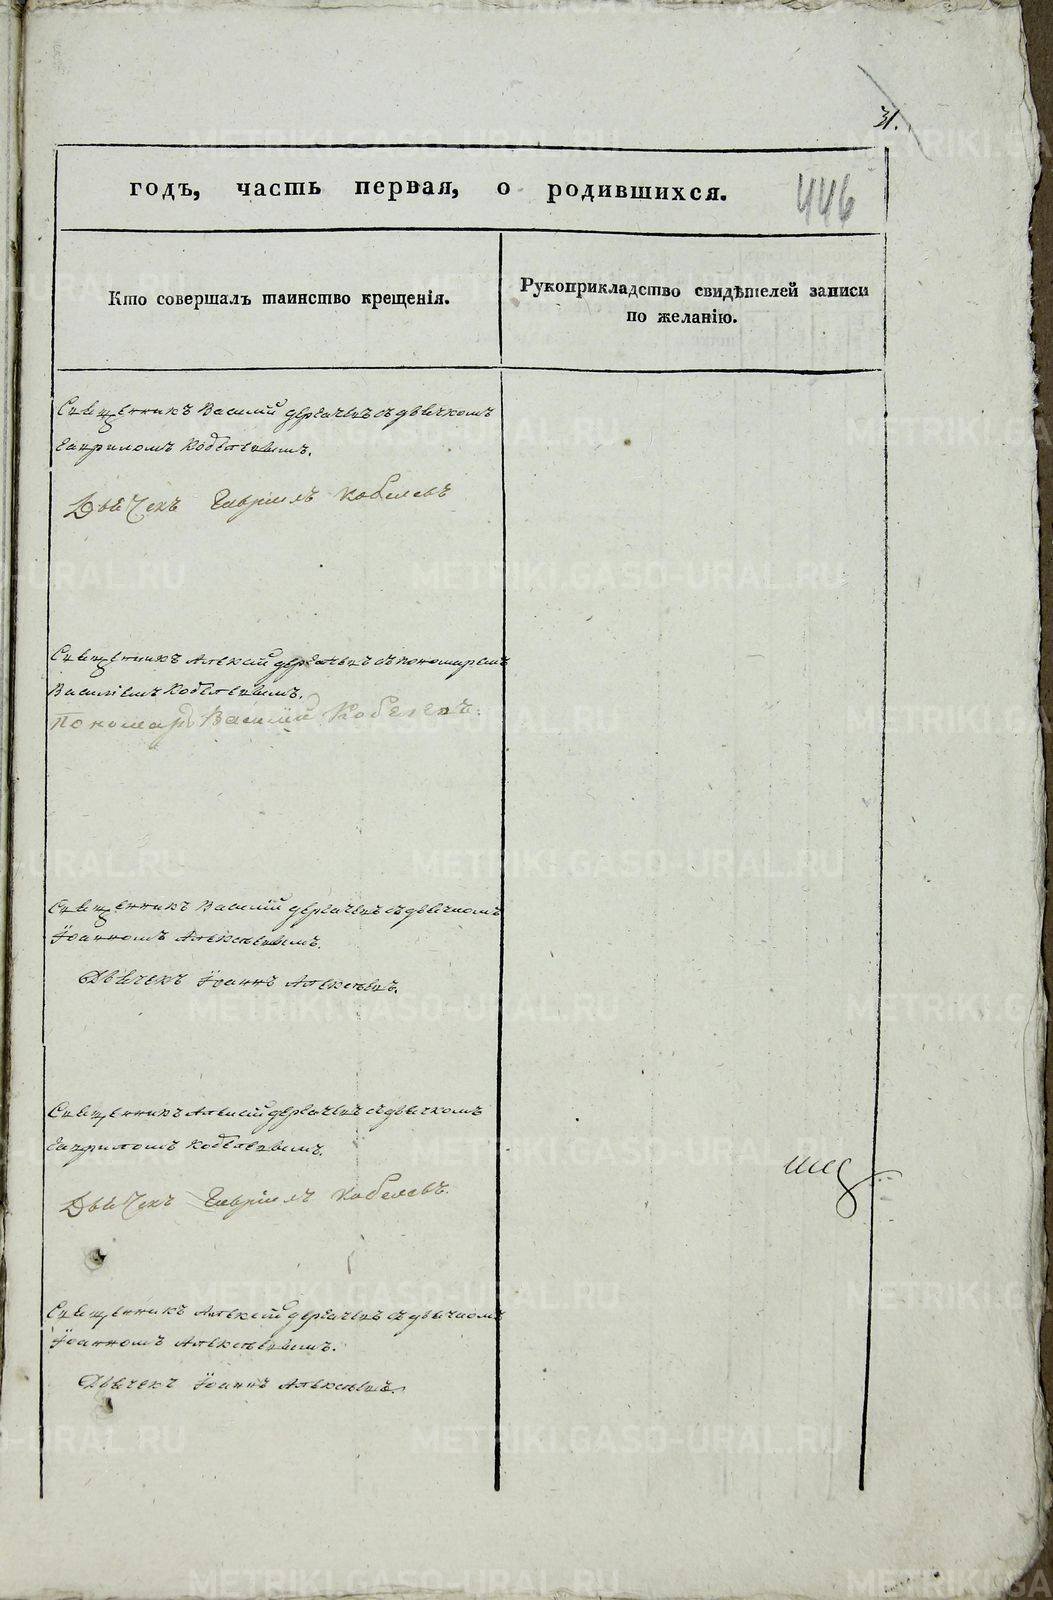 31.
годъ, часть первая, о родившихся.
446
Кто совершалъ таинство крещенія.
Рукоприкладство свидѣтелей записи
по желанію.
Священникъ Василій дергачевъ съ дьячкомъ
Гавриломъ Кобелевымъ.
Дьячекъ Гавріилъ Кобелевъ
Священникъ Алексій дергачевъ съ пономаремъ
Василіемъ Кобелевымъ.
Пономарь Василій Кобелевъ.
Священникъ Василій дергачевъ съ дьячкомъ
Іоанномъ Алексѣевымъ.
Дьячекъ Іоаннъ Алексѣевъ.
Священникъ Алексій дергачевъ съ дьячкомъ
Гавриломъ Кобелевымъ.
Дьячекъ Гавріилъ Кобелевъ.
Священникъ Алексій дергачевъ съ дьячкомъ
Іоанномъ Алексѣевымъ.
Дьячекъ Іоаннъ Алексѣевъ.
METRIKI.GASO-URAL.RU